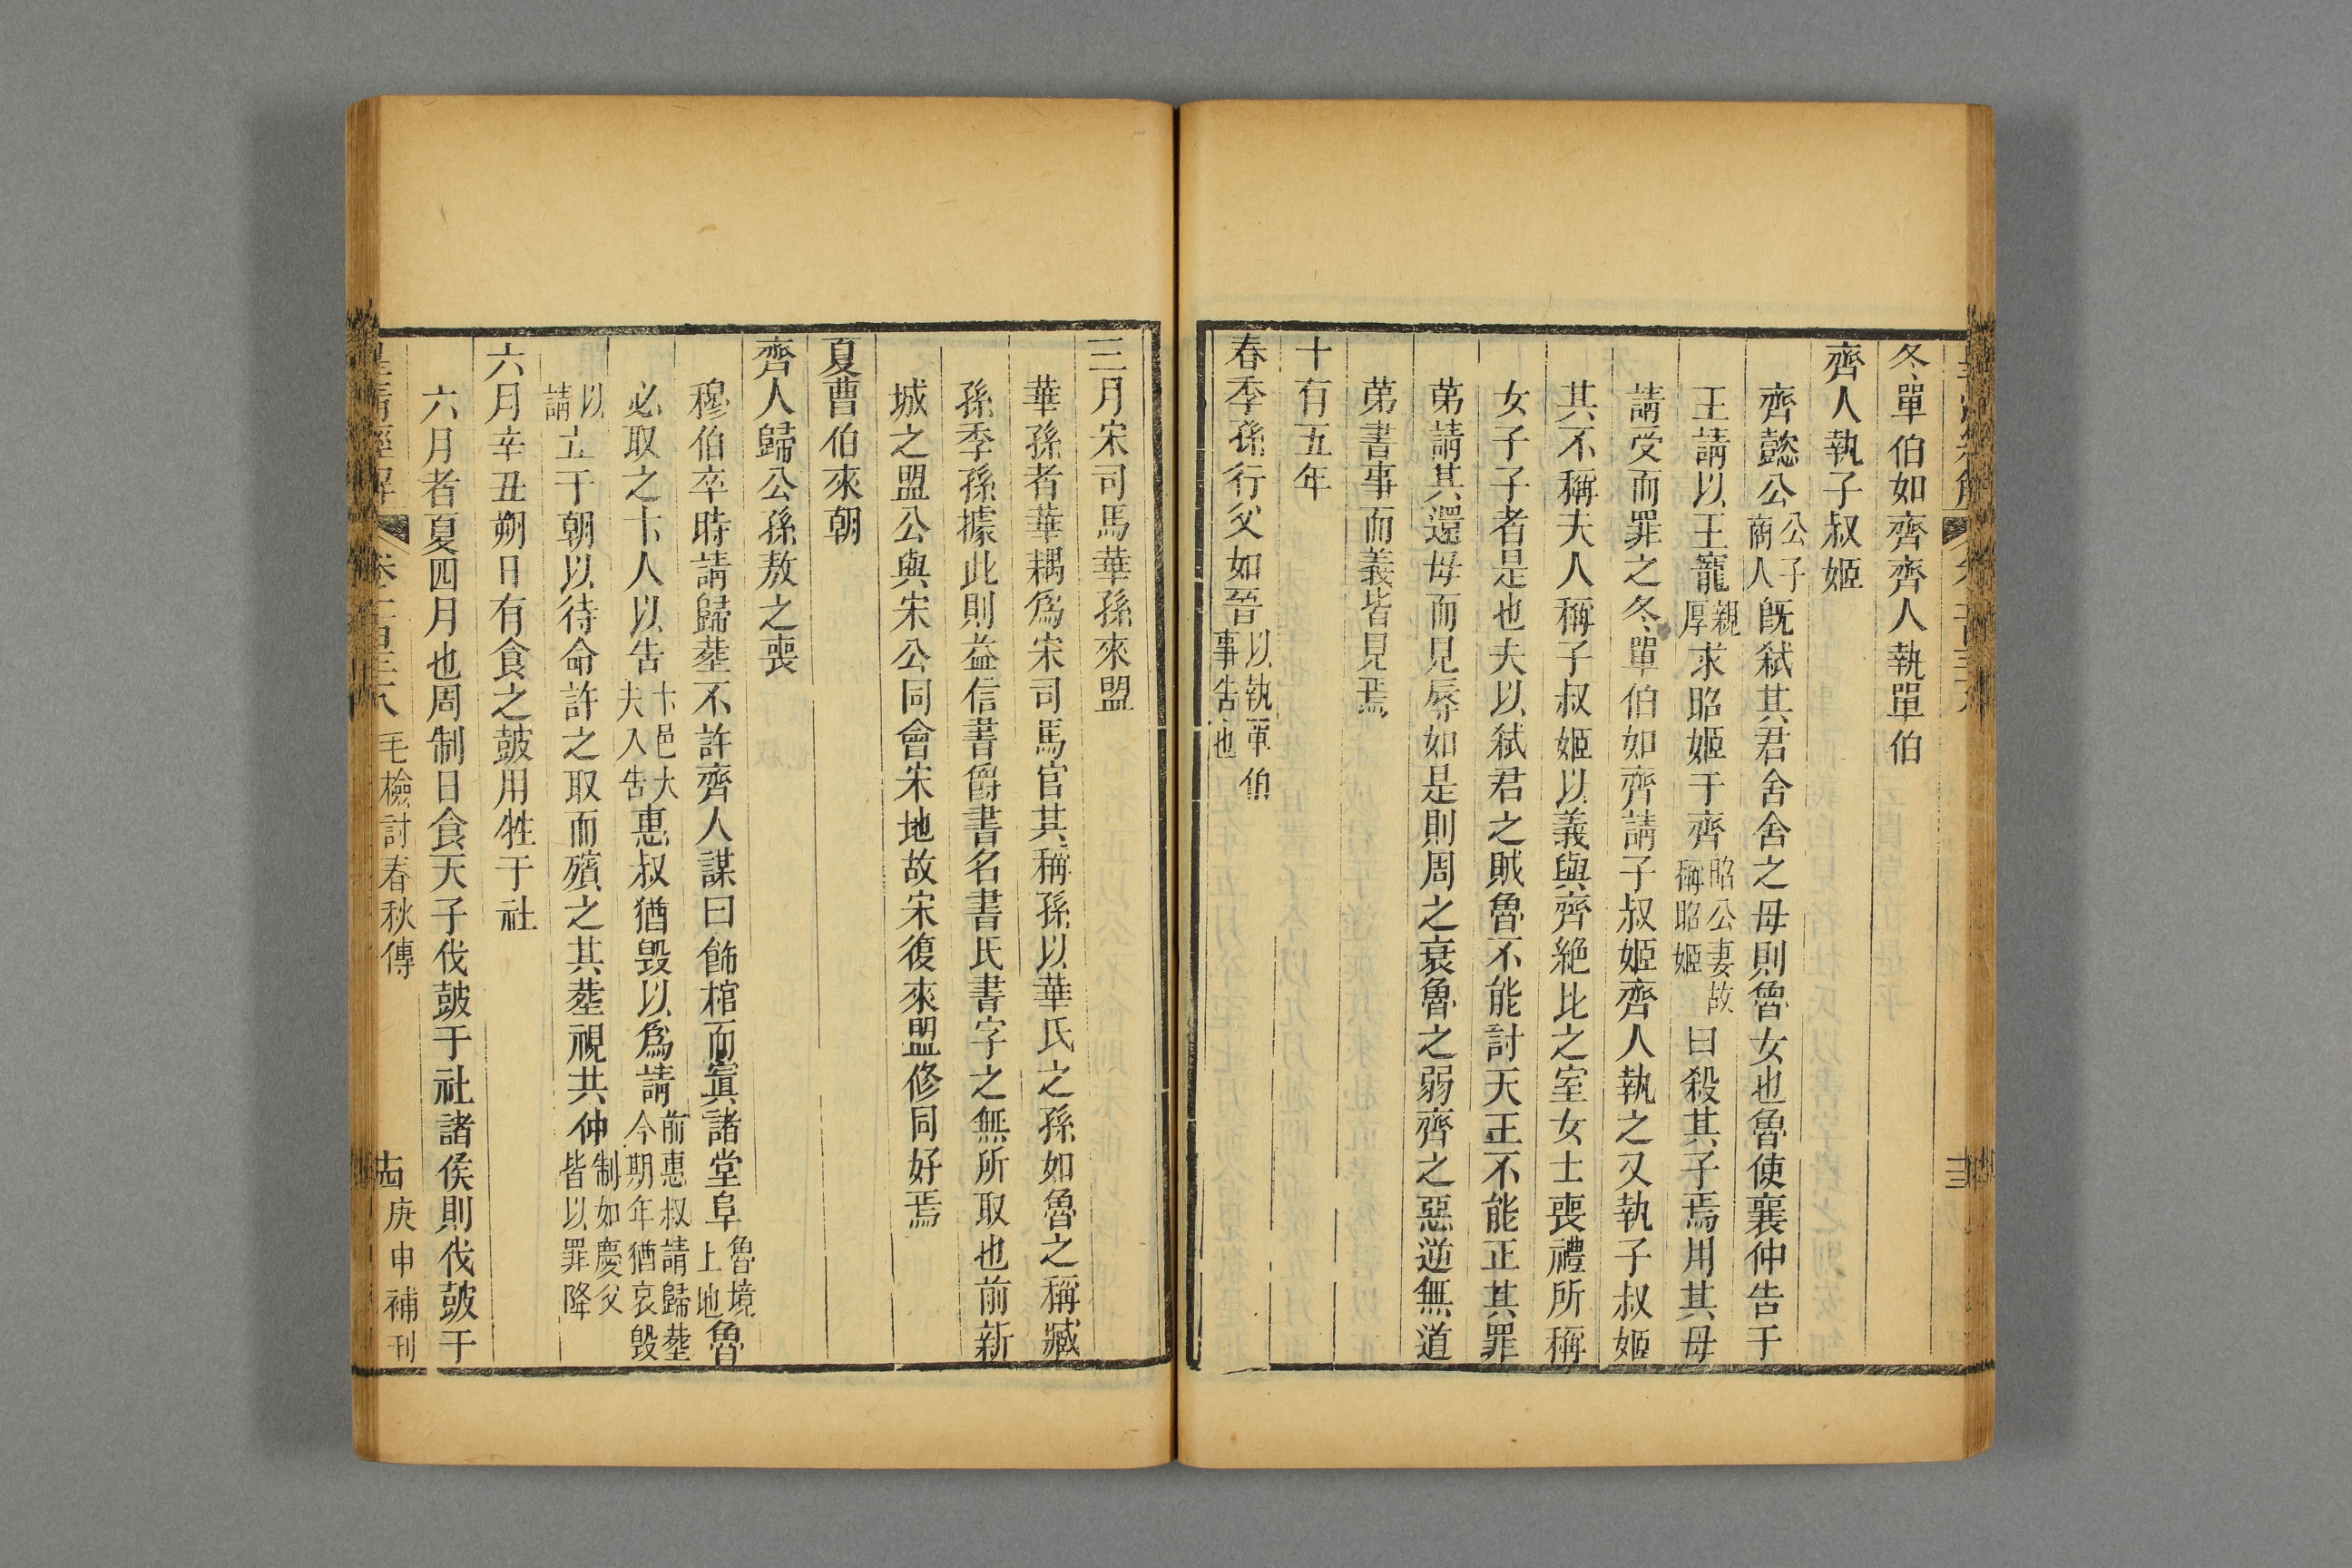 冬單伯如齊齊人執單伯
齊人執子叔姬
齊懿公公子商人既弑其君舍舍之母則魯女也魯使襄仲告于
王請以王寵親厚求昭姬于齊昭公妻故稱昭姬曰殺其子焉用其母
請受而罪之冬單伯如齊請子叔姬齊人執之又執子叔姬
其不稱夫人稱子叔姬以義與齊絶比之室女士喪禮所稱
女子子者是也夫以弑君之賊魯不能討天王不能正其罪
第請其還母而見辱如是則周之衰魯之弱齊之惡逆無道
第書事而義皆見焉
十有五年
春季孫行父如晉以執單伯事告也
三月宋司馬華孫來盟
華孫者華耦爲宋司馬官其稱孫以華氏之孫如魯之稱臧
孫季孫據此則益信書爵書名書氏書字之無所取也前新
城之盟公與宋公同會宋地故宋復來盟修同好焉
夏曹伯來朝
齊人歸公孫敖之喪
穆伯卒時請歸塟不許齊人謀曰飾棺而寘諸堂阜魯境上地魯
必取之卞人以告卞邑大夫入告惠叔猶毁以爲請前惠叔請歸塟今期年猶哀毁
以請立于朝以待命許之取而殯之其塟視共仲制如慶父皆以罪降
六月辛丑朔日有食之皷用牲于社
六月者夏四月也周制日食天子伐皷于社諸侯則伐皷于
皇清經解 毛檢討春秋傳 古 庚申補刊